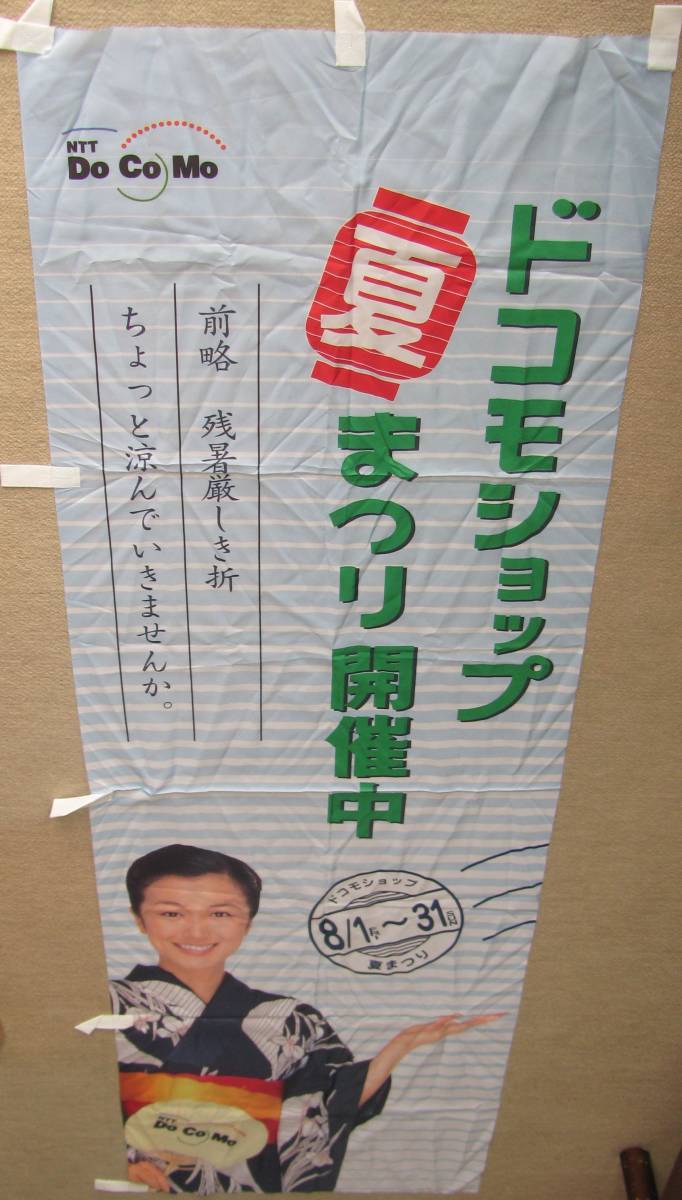 NTT
DoCoMo
ドコモショップ
夏まつり開催中
前略 残暑厳しき折
ちょっと涼んでいきませんか。
ドコモショップ
8/1～31
夏まつり
NTT
DoCoMo